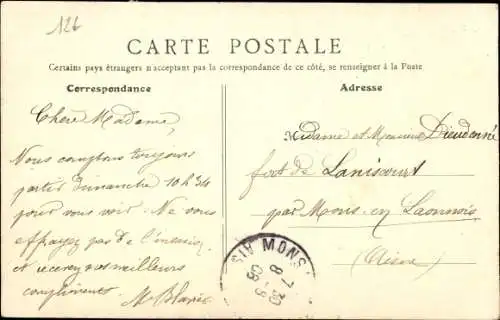 126
CARTE POSTALE
Certains pays étrangers n'acceptant pas la correspondance de ce côté, se renseigner à la Poste
Correspondance
Chère Madame,
Nous comptons toujours
partir dimanche 10 h 34
pour vous voir. Ne vous
effrayez pas de l'invasion
et recevez nos meilleurs
compliments.
Adresse
Madame et Monsieur Dieudonné
fort de Laniscourt
par Mons en Laonnois
(Aisne)
MONS
7 30
8 9
08